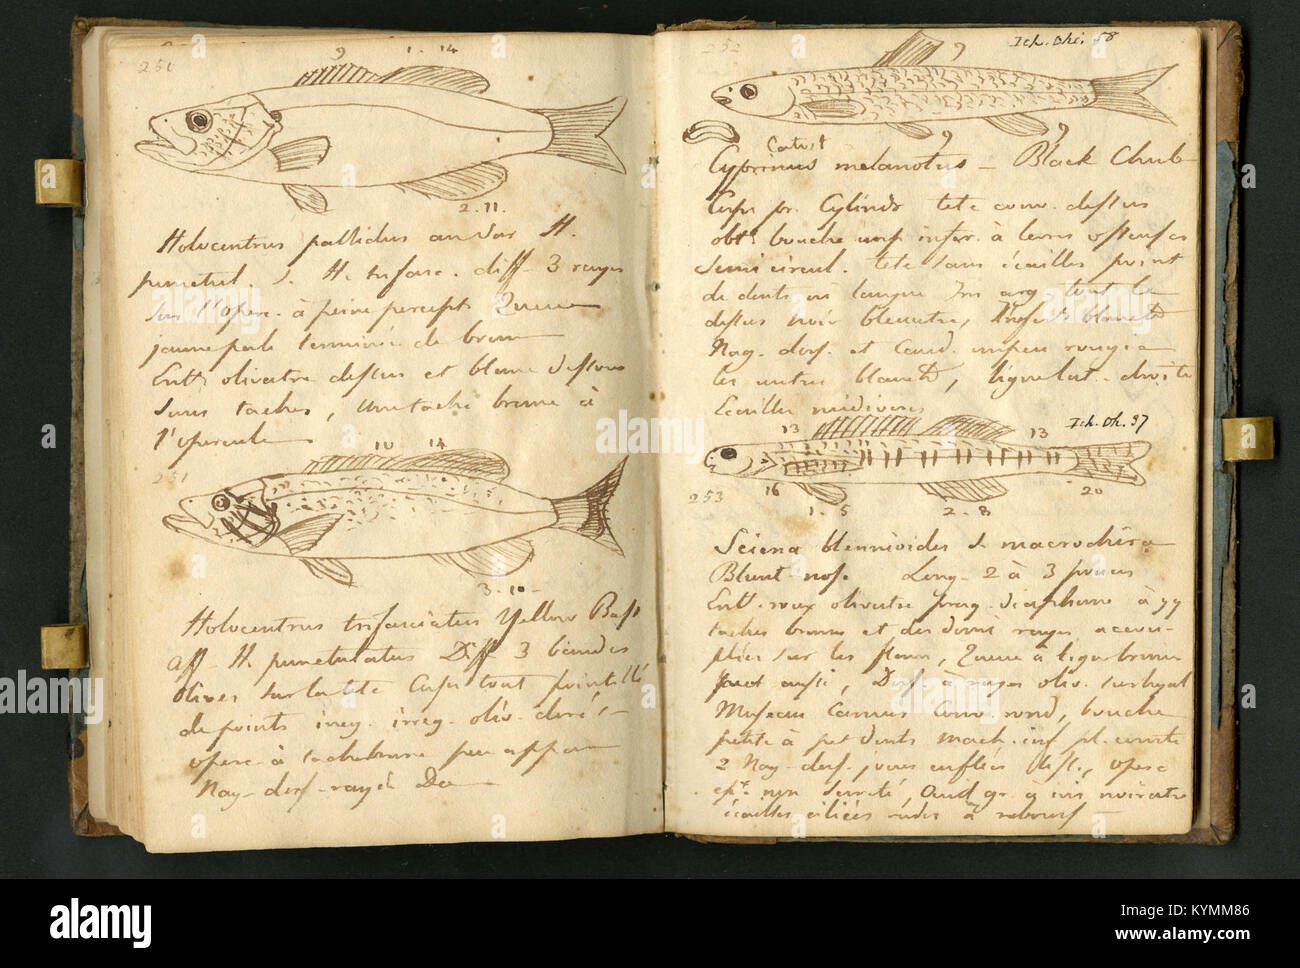 250
9
1 - 14
2. 11.
Holocentrus pallidus an Var H.
punctul. S. H. trifasc. diff 3 rayes
sur l'operc. à peine percept Queue
jaune pale terminée de brun
Entt olivatre dessus et blanc dessous
Sans taches, une tache brune à
l'opercule
10
14
251
3 - 10 -
Holocentrus trifasciatus Yellow Bass
aff - H. punctulatus Diff 3 bandes
olives sur la tete Corps tout pointillé
de points ineg. irreg. oliv.
operc à tache brune peu appar
Nag - dors - rayé Do
252
9
Ich. Ohi. 58
9
9
Catost
Cyprinus melanotus - Black Chub
Corps pr. Cylindr tete conv. dessus
obte bouche inf infer. à levres
Semicircul. tete sans écailles point
de dents ni langue Iris arg tout le
dessus noir bleuatre, blanch
Nag. dors. et Caud. un peu rouge
les autres blanch, ligne lat. droite
Ecailles mediocres
13
13
Ich. Oh. 37
253
16
20
1 - 5
2 - 8
Sciena blennioides S. macrochira
Blunt nose. Long - 2 à 3 pouces
Entt roux olivatre diaphane à
taches brunes et des demi rayes
sur les flancs, Queue à ligne brune
aussi, Dors. à rayes oliv. sur hyal
Museau Camus Conv. rond, bouche
petite à pet dents mach. inf pl. courte
2 Nag - dors. joues enflées operc
noiratre
écailles ciliées rudes à rebours -
alamy
a
Image ID: KYMM86
www.alamy.com